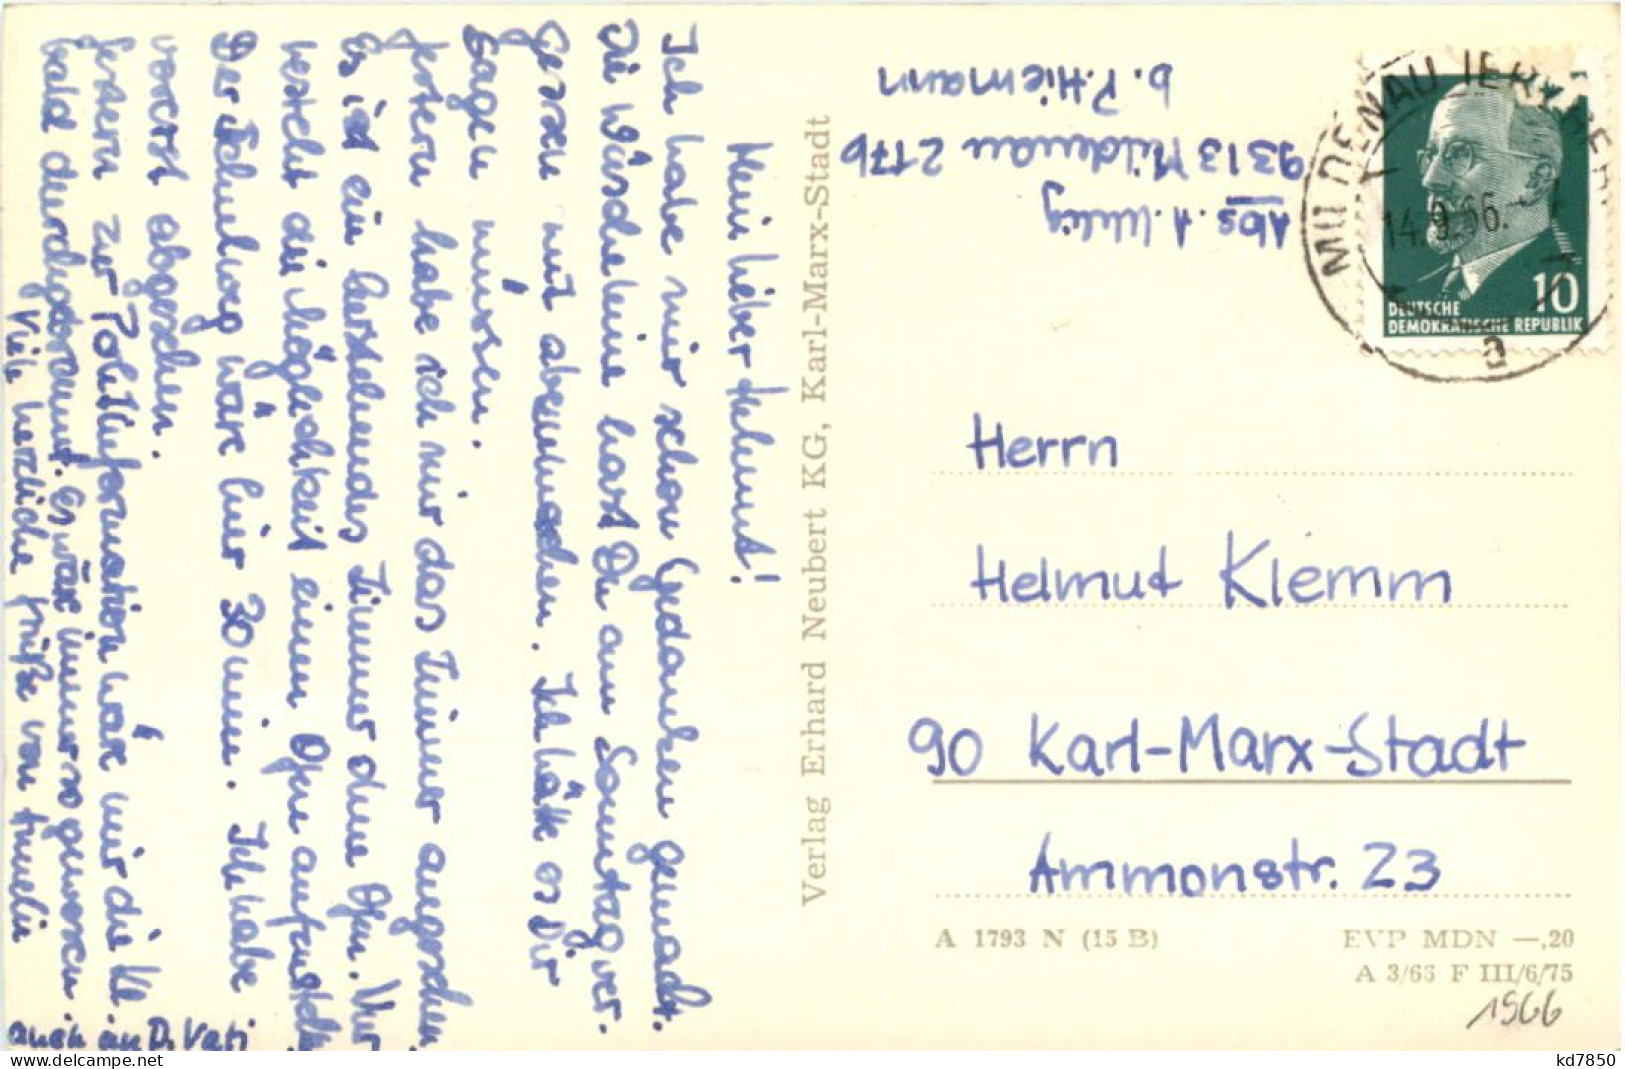 Mein lieber Helmut!
Ich habe mir schon Gedanken gemacht.
Die Wäscheleine hast Du am Sonntag ver-
gessen mit abzumachen. Ich hätte es Dir
sagen müssen.
Gestern habe ich mir das Zimmer angesehen.
Es ist ein leerstehendes Zimmer ohne Ofen. Nur
besteht die Möglichkeit einen Ofen aufzustellen.
Der Schulweg wäre hier 30 min. Ich habe
vorerst abgesehen.
Gestern zur Polit.Information wäre mir die Kl.
bald durchgebrannt. Es wäre immer so gewesen.
Viele herzliche Grüße von
auch an D. Vati
Verlag Erhard Neubert KG, Karl-Marx-Stadt
Abs. A. Uhlig
9313 Mildenau 217b
b. P. Hiemann
MILDENAU (ERZGEB)
14.9.66.
a
10
DEUTSCHE
DEMOKRATISCHE REPUBLIK
Herrn
Helmut Klemm
90 Karl-Marx-Stadt
Ammonstr. 23
A 1793 N (15 B)
EVP MDN —,20
A 3/66 F III/6/75
1966
kd7850